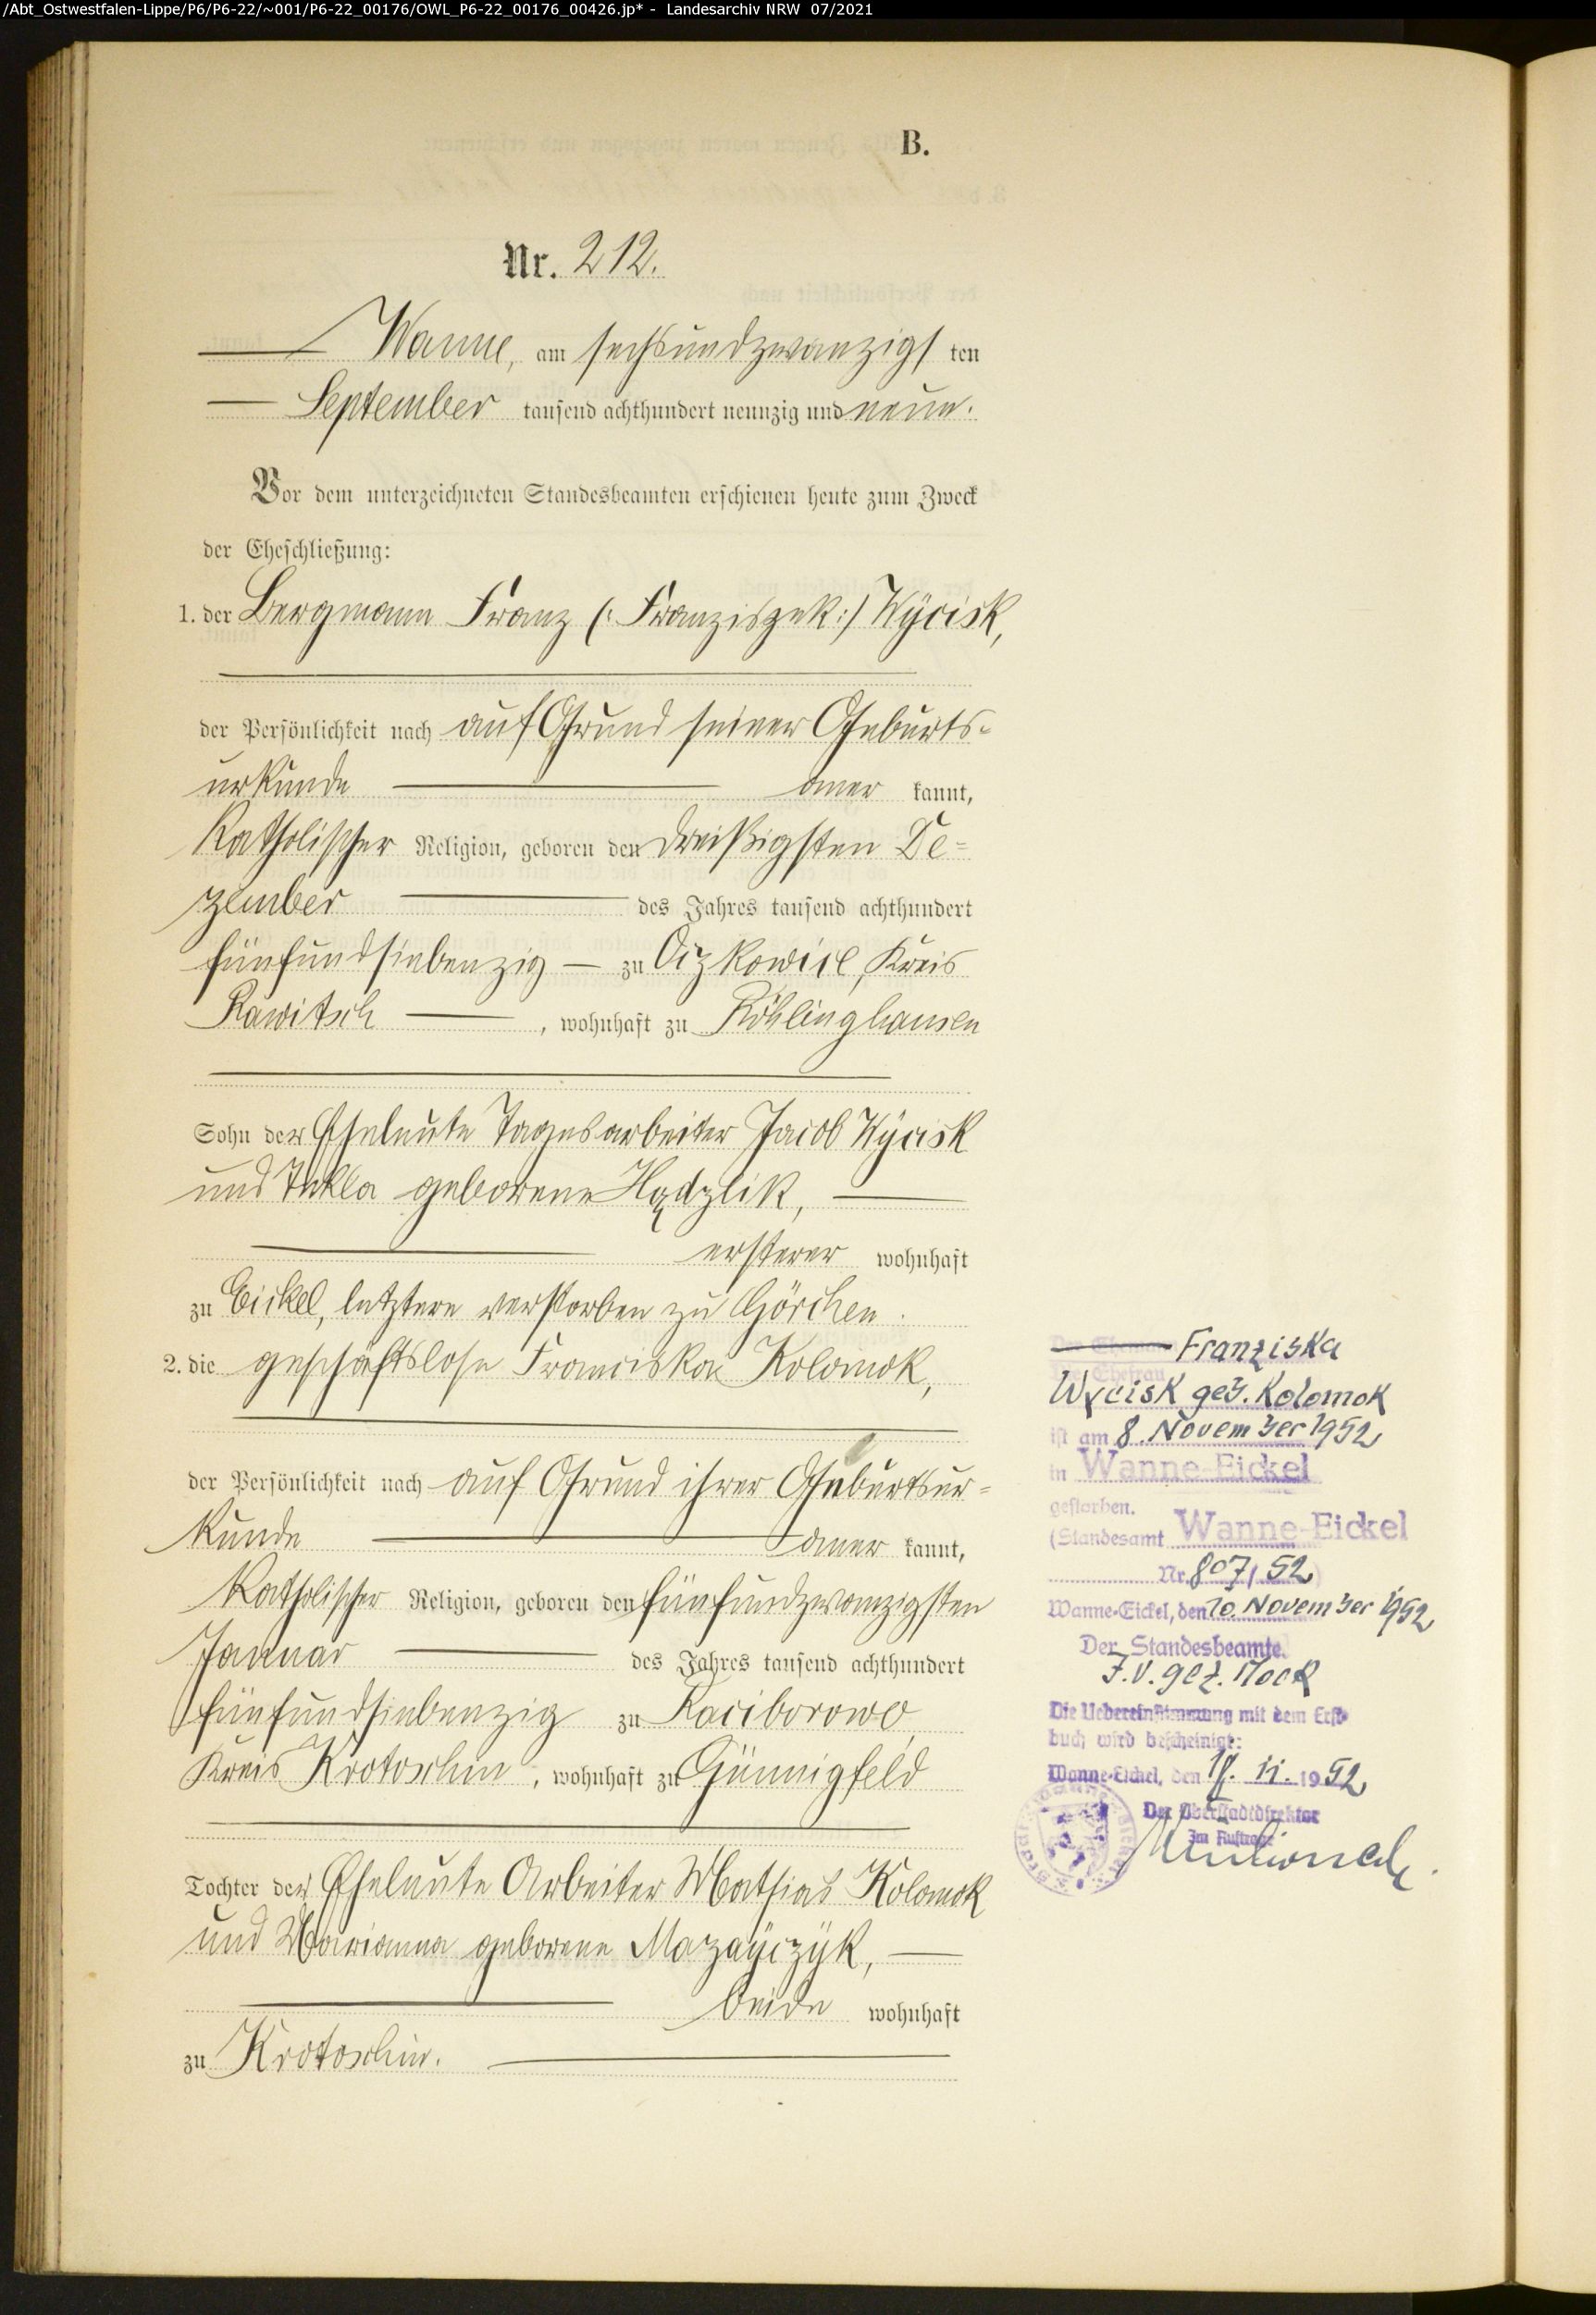 /Abt_Ostwestfalen-Lippe/P6/P6-22/~001/P6-22_00176/OWL_P6-22_00176_00426.jp* - Landesarchiv NRW 07/2021
B.
Nr. 212.
Wanne, am sechsundzwanzigsten
September tausend achthundert neunzig und neun.
Vor dem unterzeichneten Standesbeamten erschienen heute zum Zweck
der Eheschließung:
1. der Bergmann Franz (: Franziszek :) Wÿcisk,
der Persönlichkeit nach auf Grund seiner Geburts-
urkunde aner kannt,
Katholischer Religion, geboren den dreißigsten De-
zember des Jahres tausend achthundert
fünfundsiebenzig zu Oczkowice, Kreis
Rawitsch, wohnhaft zu Röhlinghausen
Sohn der Eheleute Tagesarbeiter Jacob Wÿcisk
und Tekla geborene Hądzlik,
ersterer wohnhaft
zu Eickel, letztere verstorben zu Görchen.
2. die geschäftslose Franciska Kolomok,
der Persönlichkeit nach auf Grund ihrer Geburtsur-
kunde aner kannt,
Katholischer Religion, geboren den fünfundzwanzigsten
Januar des Jahres tausend achthundert
fünfundsiebenzig zu Raciborowo,
Kreis Krotoschin, wohnhaft zu Günnigfeld
Tochter der Eheleute Arbeiter Mathias Kolomok
und Marianna geborene Mazaÿczÿk,
beide wohnhaft
zu Krotoschin.
Franziska
Wycisk geb. Kolomok
ist am 8. November 1952
in Wanne-Eickel
gestorben.
(Standesamt Wanne-Eickel
Nr. 807/52)
Wanne-Eickel, den 10. November 1952
Der Standesbeamte
I.V. gez.
Die Uebereinstimmung mit dem Erst-
buch wird bescheinigt:
Wanne-Eickel, den 11. 1952
Der Oberstadtdirektor
Im Auftrage